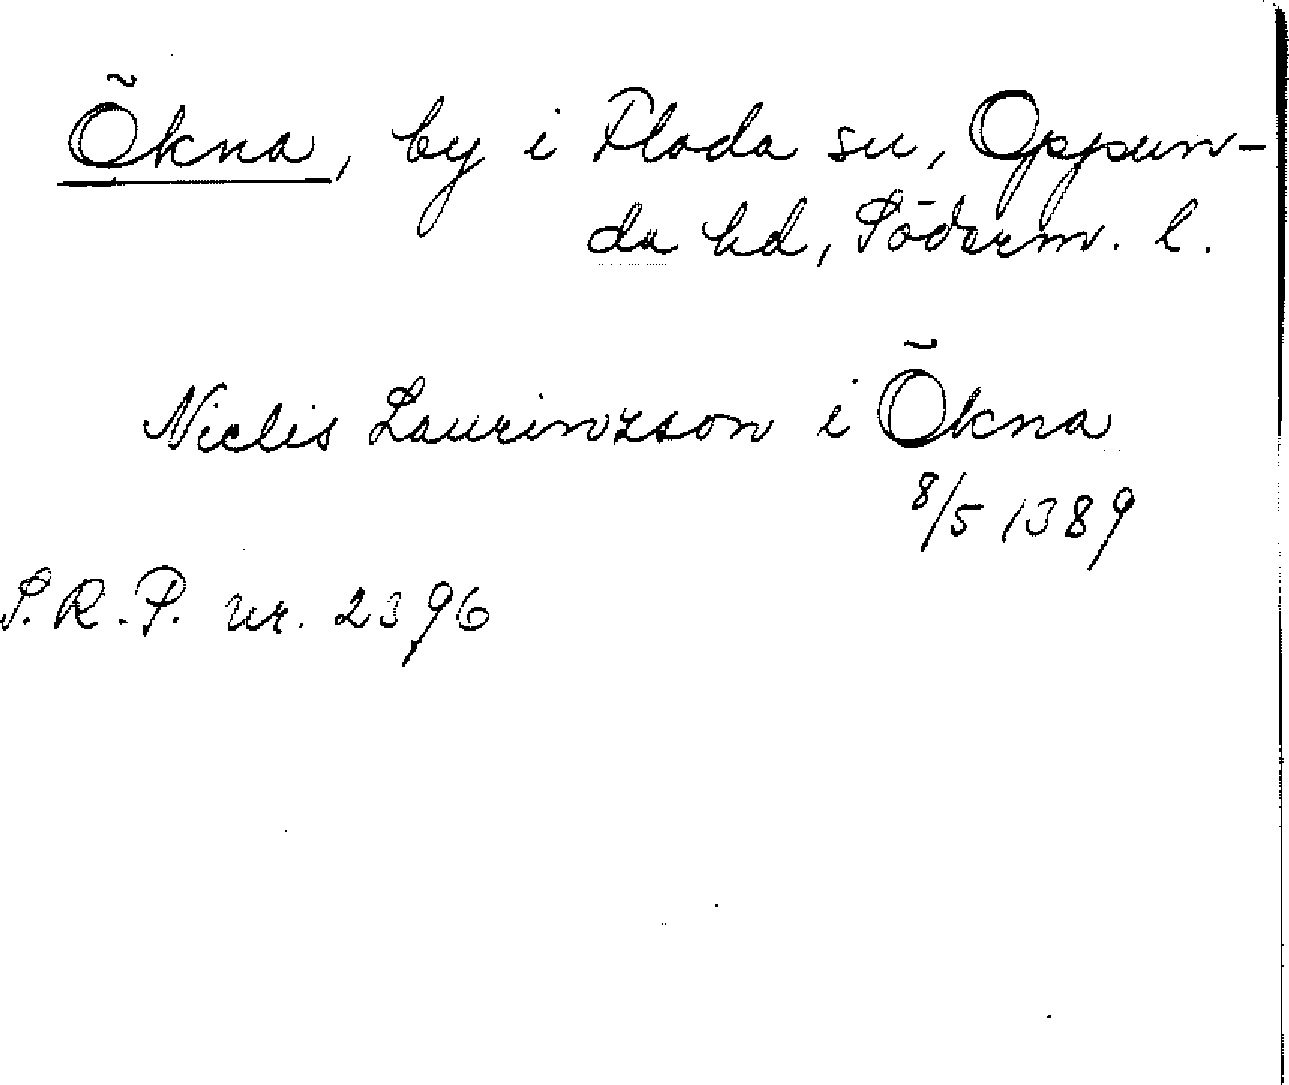 Ökna, by i Floda sn, Oppun-
da hd, Söderm. l.
Niclis Laurinzson i Ökna
8/5 1389
S.R.P. nr. 2396